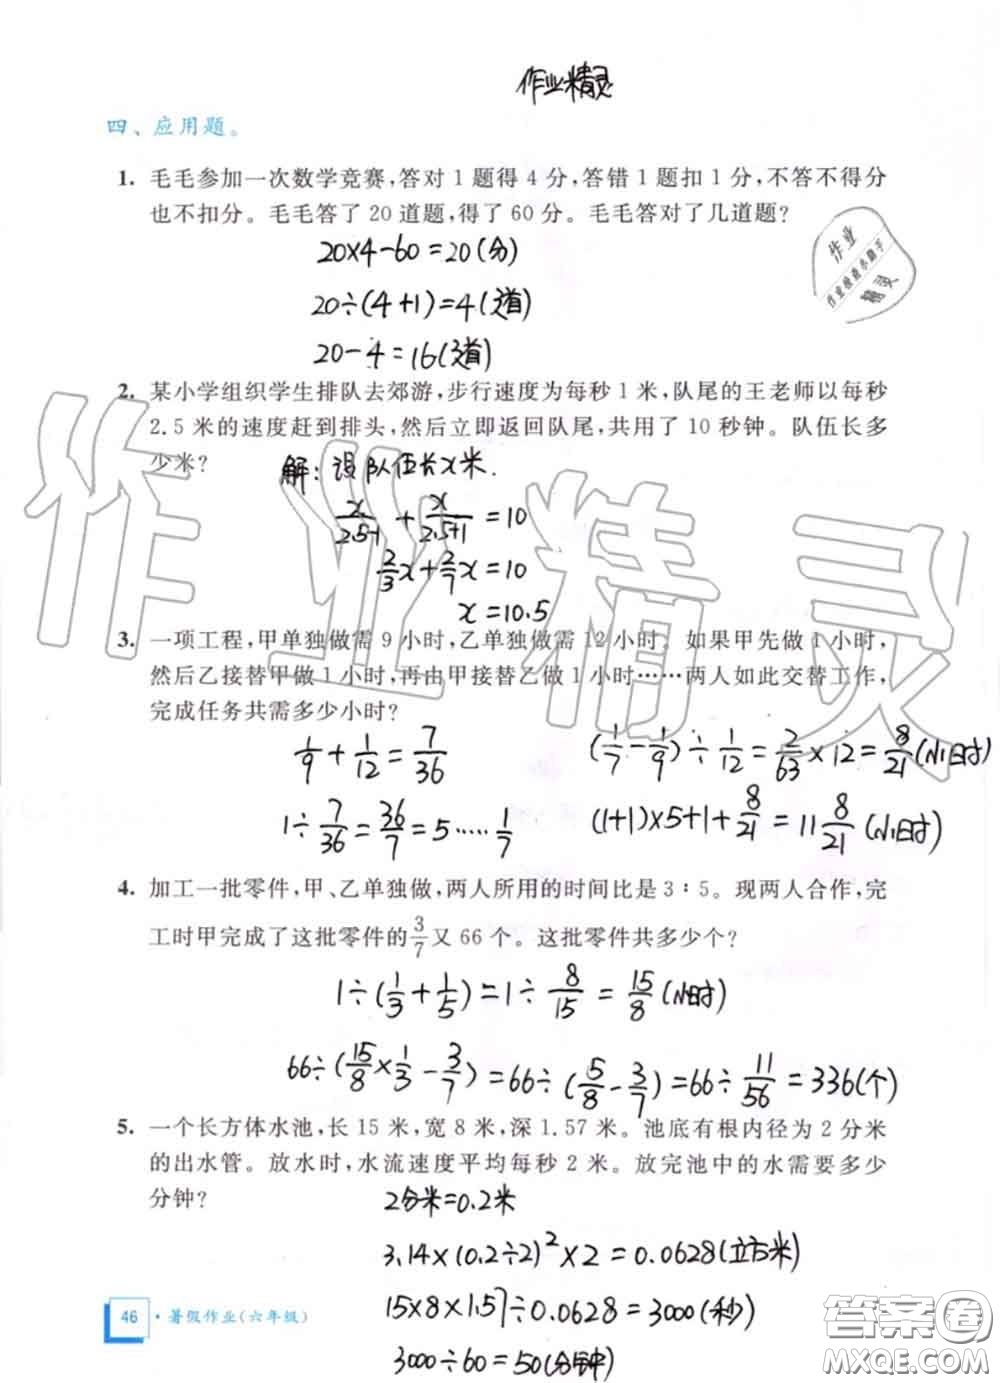 作业精灵
四、应用题。
1. 毛毛参加一次数学竞赛,答对 1 题得 4 分,答错 1 题扣 1 分,不答不得分
也不扣分。毛毛答了 20 道题,得了 60 分。毛毛答对了几道题?
20×4-60=20(分)
20÷(4+1)=4(道)
20-4=16(道)
作业
作业检查小助手
精灵
2. 某小学组织学生排队去郊游,步行速度为每秒 1 米,队尾的王老师以每秒
2.5 米的速度赶到排头,然后立即返回队尾,共用了 10 秒钟。队伍长多
少米?
解:设队伍长x米.
x/(2.5-1) + x/(2.5+1) =10
2/3x+2/7x=10
x=10.5
作业精灵
3. 一项工程,甲单独做需 9 小时,乙单独做需 12 小时。如果甲先做 1 小时,
然后乙接替甲做 1 小时,再由甲接替乙做 1 小时……两人如此交替工作,
完成任务共需多少小时?
1/9+1/12=7/36
(1/7-1/9)÷1/12=2/63×12=8/21(小时)
1÷7/36=36/7=5……1/7
(1+1)×5+1+8/21=11 8/21(小时)
4. 加工一批零件,甲、乙单独做,两人所用的时间比是 3∶5。现两人合作,完
工时甲完成了这批零件的3/7又 66 个。这批零件共多少个?
1÷(1/3+1/5)=1÷8/15=15/8(小时)
66÷(15/8×1/3-3/7)=66÷(5/8-3/7)=66÷11/56=336(个)
5. 一个长方体水池,长 15 米,宽 8 米,深 1.57 米。池底有根内径为 2 分米
的出水管。放水时,水流速度平均每秒 2 米。放完池中的水需要多少
分钟?
2分米=0.2米
3.14×(0.2÷2)²×2=0.0628(立方米)
15×8×1.57÷0.0628=3000(秒)
3000÷60=50(分钟)
46 ·暑假作业(六年级)
答案圈
MXQE.COM